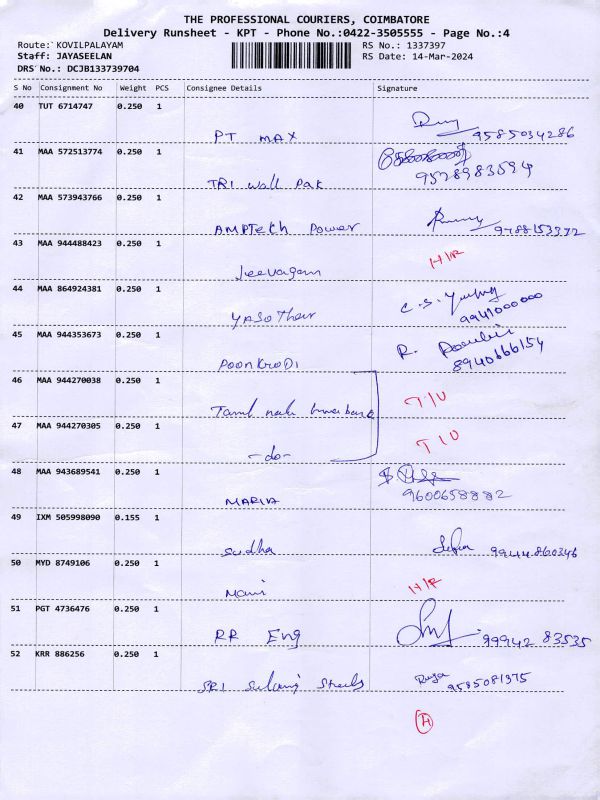 THE PROFESSIONAL COURIERS, COIMBATORE
Delivery Runsheet - KPT - Phone No.:0422-3505555 - Page No.:4
Route: KOVILPALAYAM
RS No.: 1337397
Staff: JAYASEELAN
RS Date: 14-Mar-2024
DRS No.: DCJB133739704
S No Consignment No Weight PCS Consignee Details Signature
40 TUT 6714747 0.250 1
PT MAX 9585034286
41 MAA 572513774 0.250 1
TRI Wall Pak 9528983594
42 MAA 573943766 0.250 1
AMPTech Power 9788153972
43 MAA 944488423 0.250 1
Jeevagam H/R
44 MAA 864924381 0.250 1
C. S. 9941000000
45 MAA 944353673 0.250 1
R. 8940666154
PoonKroDi
46 MAA 944270038 0.250 1
Tamil T/U
47 MAA 944270305 0.250 1
-do- T/U
48 MAA 943689541 0.250 1
MARIA 9600658882
49 IXM 505998090 0.155 1
Sudha 9944860346
50 MYD 8749106 0.250 1
Mani H/R
51 PGT 4736476 0.250 1
RR Eng 99942 83535
52 KRR 886256 0.250 1
SRI Steels 9585081375
H